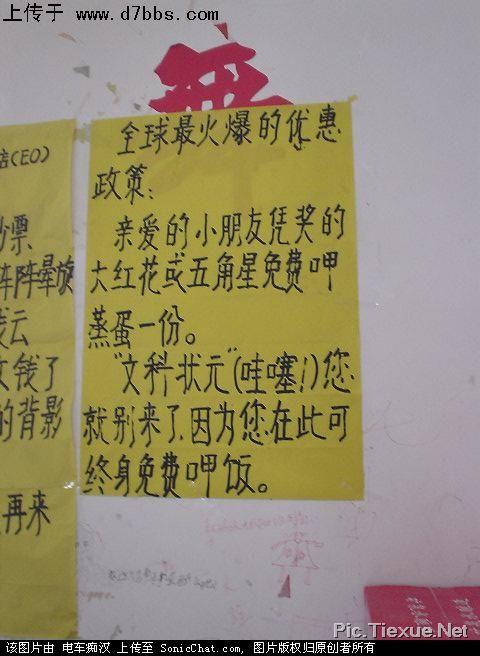 上传于 www.d7bbs.com
店(CEO)
钞票
阵阵晕旋
钱云
女钱了
的背影
再来
全球最火爆的优惠
政策:
亲爱的小朋友凭奖的
大红花或五角星免费呷
蒸蛋一份。
"文科状元"(哇噻!)您
就别来了.因为您在此可
终身免费呷饭。
Pic.Tiexue.Net
该图片由 电车痴汉 上传至 SonicChat.com, 图片版权归原创者所有